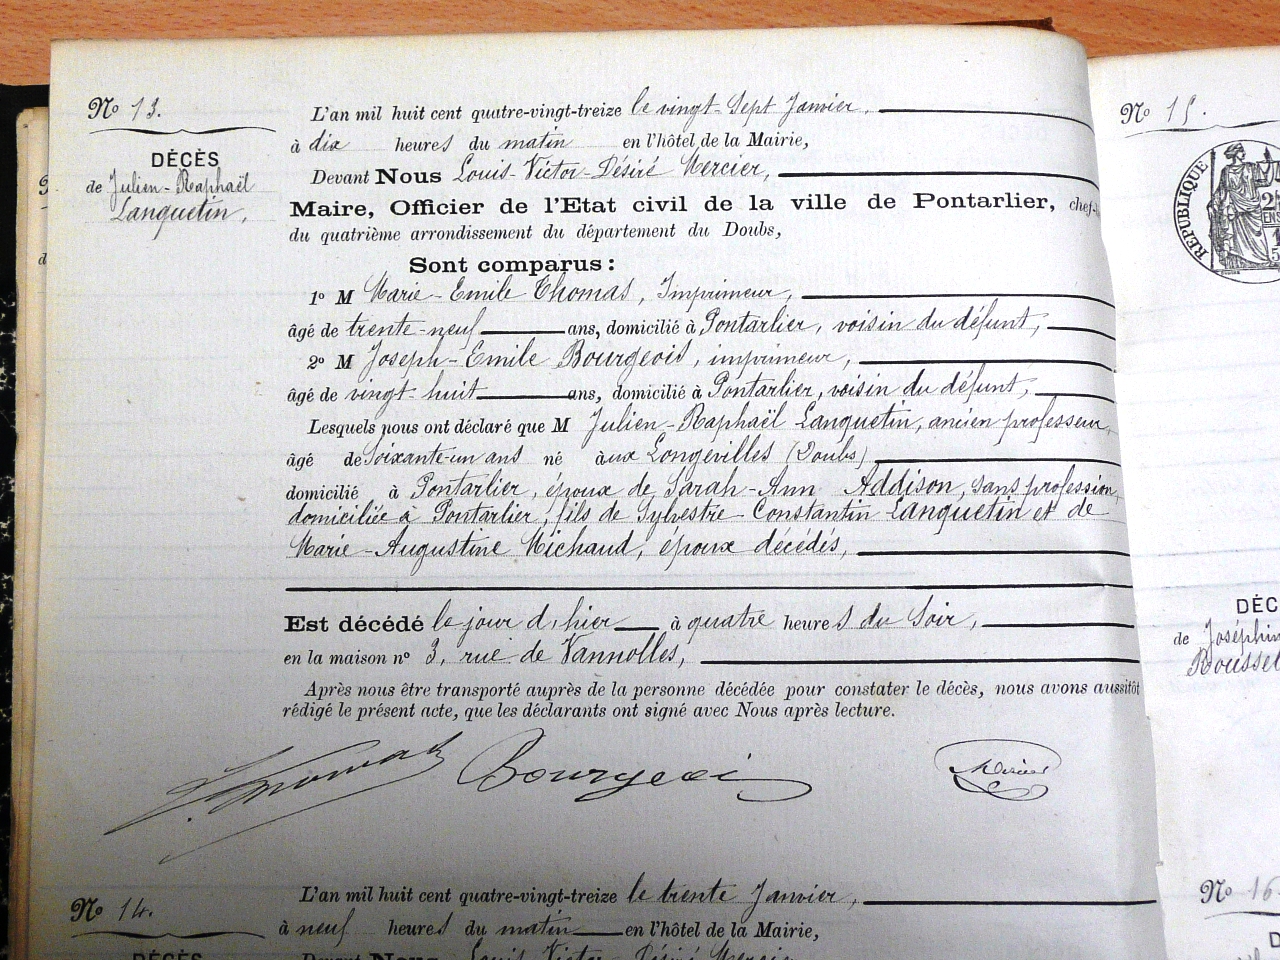 No 13.
DÉCÈS
de Julien-Raphaël
Languetin,
L'an mil huit cent quatre-vingt-treize le vingt-Sept Janvier,
à dix heures du matin en l'hôtel de la Mairie,
Devant Nous Louis-Victor-Désiré Mercier,
Maire, Officier de l'Etat civil de la ville de Pontarlier, chef-
du quatrième arrondissement du département du Doubs,
Sont comparus :
1o M Marie-Emile Thomas, Imprimeur,
âgé de trente-neuf ans, domicilié à Pontarlier, voisin du défunt,
2o M Joseph-Emile Bourgeois, imprimeur,
âgé de vingt-huit ans, domicilié à Pontarlier, voisin du défunt,
Lesquels nous ont déclaré que M Julien-Raphaël Languetin, ancien professeur,
âgé de soixante-un ans né aux Longevilles (Doubs)
domicilié à Pontarlier, époux de Sarah-Ann Addison, sans profession,
domiciliée à Pontarlier, fils de Sylvestre-Constantin Languetin et de
Marie-Augustine Michaud, époux décédés,
Est décédé le jour d'hier à quatre heures du Soir,
en la maison no 3, rue de Vannolles,
Après nous être transporté auprès de la personne décédée pour constater le décès, nous avons aussitôt
rédigé le présent acte, que les déclarants ont signé avec Nous après lecture.
Thomas Bourgeois Mercier
No 14.
DÉCÈS
L'an mil huit cent quatre-vingt-treize le trente Janvier,
à neuf heures du matin en l'hôtel de la Mairie,
Devant Nous Louis-Victor-Désiré Mercier
No 15.
RÉPUBLIQUE
DÉC
de Joséphin
Rousset
No 16.
D